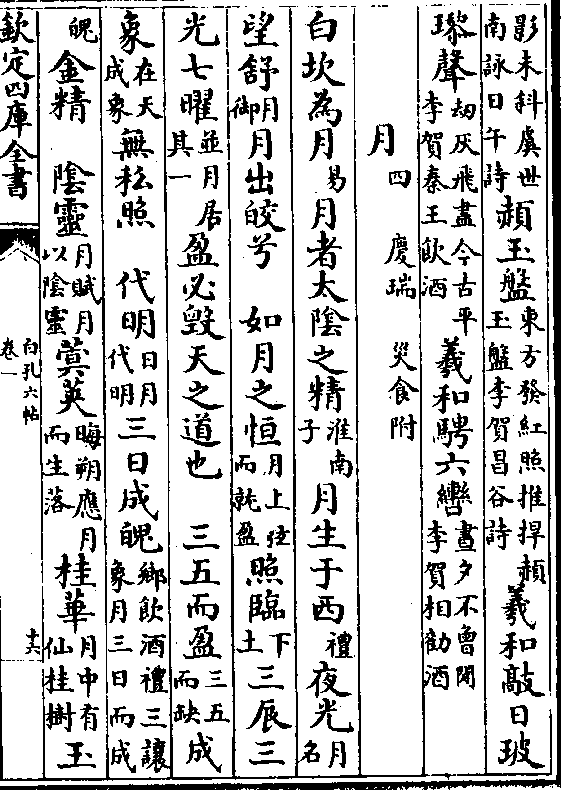 影未斜虞世
南詠日午詩
赬玉盤
東方發紅照推捍赬
玉盤李賀昌谷詩
羲和敲日玻
瓈聲
劫灰飛盡今古平
李賀秦王飲酒
羲和騁六轡
晝夕不曽閒
李賀相勸酒
月
四 慶瑞 災食附
白坎為月
易
月者太陰之精
淮南
子
月生于西
禮
夜光
月
名
望舒
月
御
月出皎兮 如月之恒
月上弦
而就盈
照臨
下
土
三辰三
光七曜
並月居
其一
盈必毀天之道也 三五而盈
三五
而缺
成
象
在天
成象
無私照 代明
日月
代明
三日成魄
鄉飲酒禮三讓
象月三日而成
魄
金精 陰靈
月賦月
以陰靈
蓂英
晦朔應月
而生落
桂華
月中有
仙桂樹
玉
欽定四庫全書
白孔六帖
卷一
十六